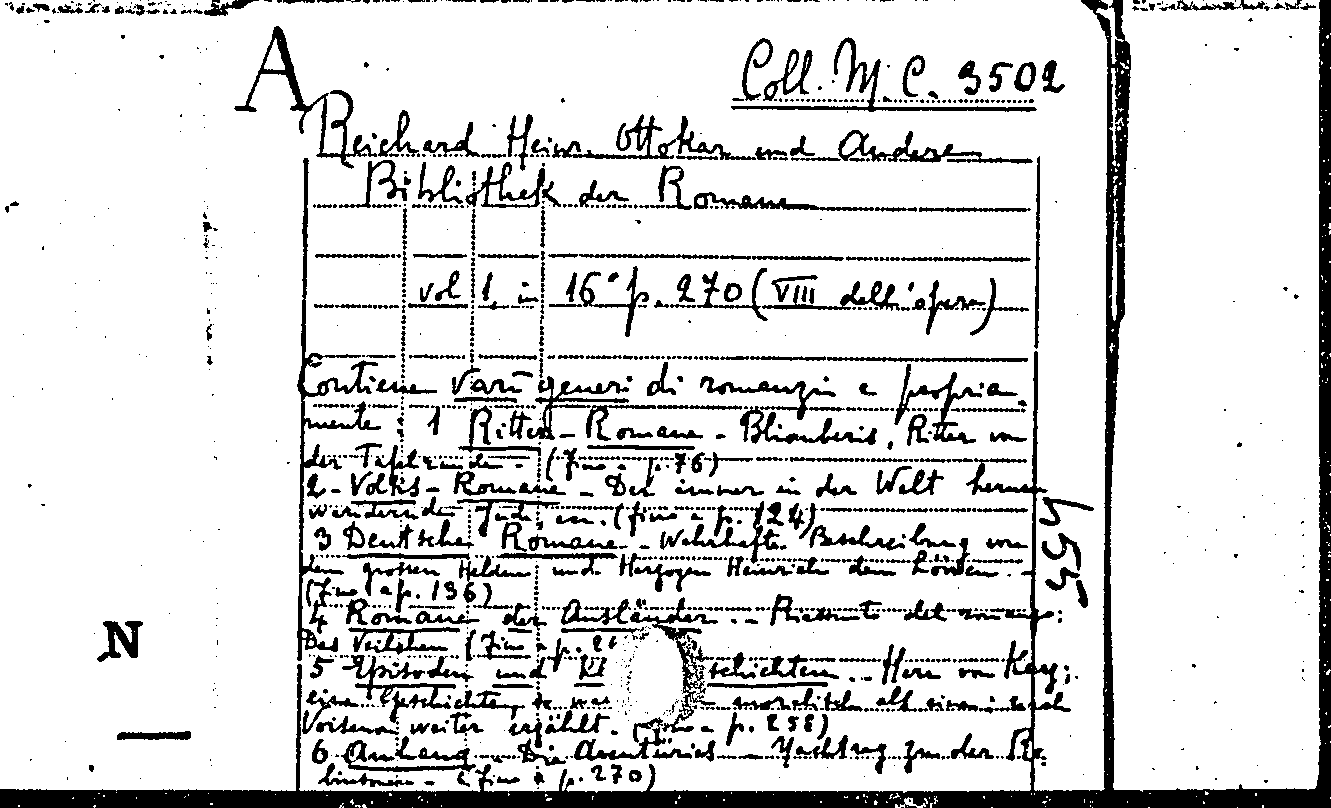 A
Coll. M. C. 3502
Reichard Heinr. Ottokar und Andere
Bibliothek der Romane
vol 1, in 16° p. 270 (VIII dell'opera)
Contiene varii generi di romanzi e propria-
mente: 1 Ritter-Romane - Bliomberis, Ritter von
der Tafelrunde - (fino a p. 76)
2 - Volks-Romane - Der immer in der Welt herum
wandernde Jude, (fino a p. 124)
3 Deutsche Romane - Wahrhafte Beschreibung von
dem grossen Helden und Herzogen Heinrich dem Löwen -
(fino a p. 136)
4 Romane der Ausländer - Riassunto del romanzo:
Das Veilchen (fino a p. 2
5 Episoden und Kl schichten - Herr von Kerg;
eine Geschichte, so moralisch als
Voisenon weiter erzählt. (fino a p. 258)
6 Anhang - Die Aventüriers - Nachtrag zu der
(fino a p. 270)
555
N